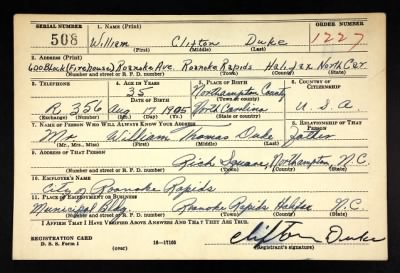 SERIAL NUMBER 1. NAME (Print) ORDER NUMBER
508 William Clifton Duke 1227
(First) (Middle) (Last)
2. ADDRESS (Print)
600 Block (Firehouse) Roanoke Ave. Roanoke Rapids Halifax North Car.
(Number and street or R. F. D. number) (Town) (County) (State)
3. TELEPHONE 4. AGE IN YEARS 5. PLACE OF BIRTH 6. COUNTRY OF CITIZENSHIP
35 Northampton County
DATE OF BIRTH (Town or county)
R 356 Aug 17 1905 North Carolina U.S.A.
(Exchange) (Number) (Mo.) (Day) (Yr.) (State or country)
7. NAME OF PERSON WHO WILL ALWAYS KNOW YOUR ADDRESS 8. RELATIONSHIP OF THAT PERSON
Mr William Thomas Duke Father
(Mr., Mrs., Miss) (First) (Middle) (Last)
9. ADDRESS OF THAT PERSON
Rich Square, Northampton, N.C.
(Number and street or R. F. D. number) (Town) (County) (State)
10. EMPLOYER'S NAME
City of Roanoke Rapids
11. PLACE OF EMPLOYMENT OR BUSINESS
Municipal Bldg. Roanoke Rapids Halifax N.C.
(Number and street or R. F. D. number) (Town) (County) (State)
I AFFIRM THAT I HAVE VERIFIED ABOVE ANSWERS AND THAT THEY ARE TRUE.
REGISTRATION CARD
D. S. S. Form 1 (over) 16—17105 Clifton Duke
(Registrant's signature)